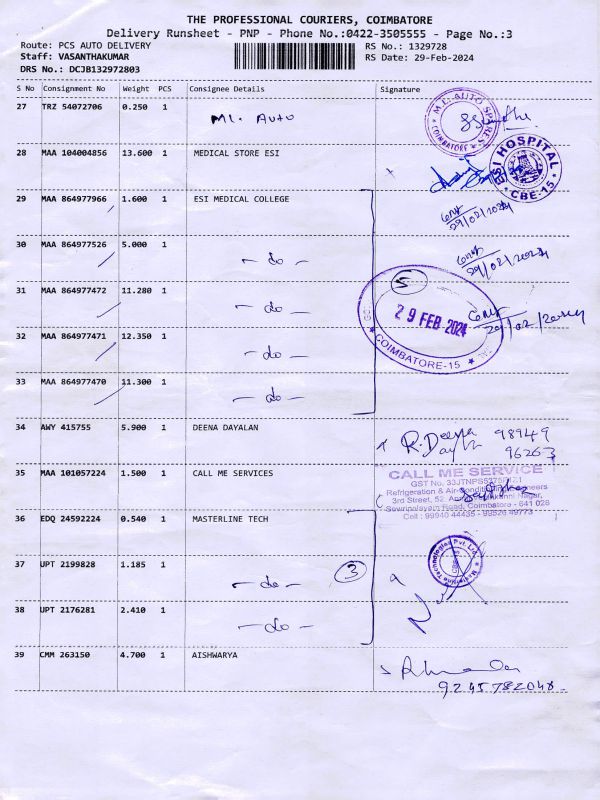 THE PROFESSIONAL COURIERS, COIMBATORE
Delivery Runsheet - PNP - Phone No.:0422-3505555 - Page No.:3
Route: PCS AUTO DELIVERY RS No.: 1329728
Staff: VASANTHAKUMAR RS Date: 29-Feb-2024
DRS No.: DCJB132972803
S No Consignment No Weight PCS Consignee Details Signature
27 TRZ 54072706 0.250 1 ML. AUTO
M.L. AUTO SPARES COIMBATORE
28 MAA 104004856 13.600 1 MEDICAL STORE ESI
ESI HOSPITAL CBE-15
29 MAA 864977966 1.600 1 ESI MEDICAL COLLEGE
29/02/2024
30 MAA 864977526 5.000 1 - do -
29/02/2024
31 MAA 864977472 11.280 1 - do -
5
29 FEB 2024
COIMBATORE-15
29/02/2024
32 MAA 864977471 12.350 1 - do -
33 MAA 864977470 11.300 1 - do -
34 AWY 415755 5.900 1 DEENA DAYALAN R. Deena Dayln 98949
96263
35 MAA 101057224 1.500 1 CALL ME SERVICES
CALL ME SERVICE
GST No.
Refrigeration & Air-Conditioning Engineers
3rd Street, 52, Nagar,
Sowripalayam Road, Coimbatore - 641 028
Cell : 99940 44435 - 99526 49773
36 EDQ 24592224 0.540 1 MASTERLINE TECH
Masterline Technologies Pvt Ltd
37 UPT 2199828 1.185 1 - do - 3
38 UPT 2176281 2.410 1 - do -
39 CMM 263150 4.700 1 AISHWARYA
9245782048